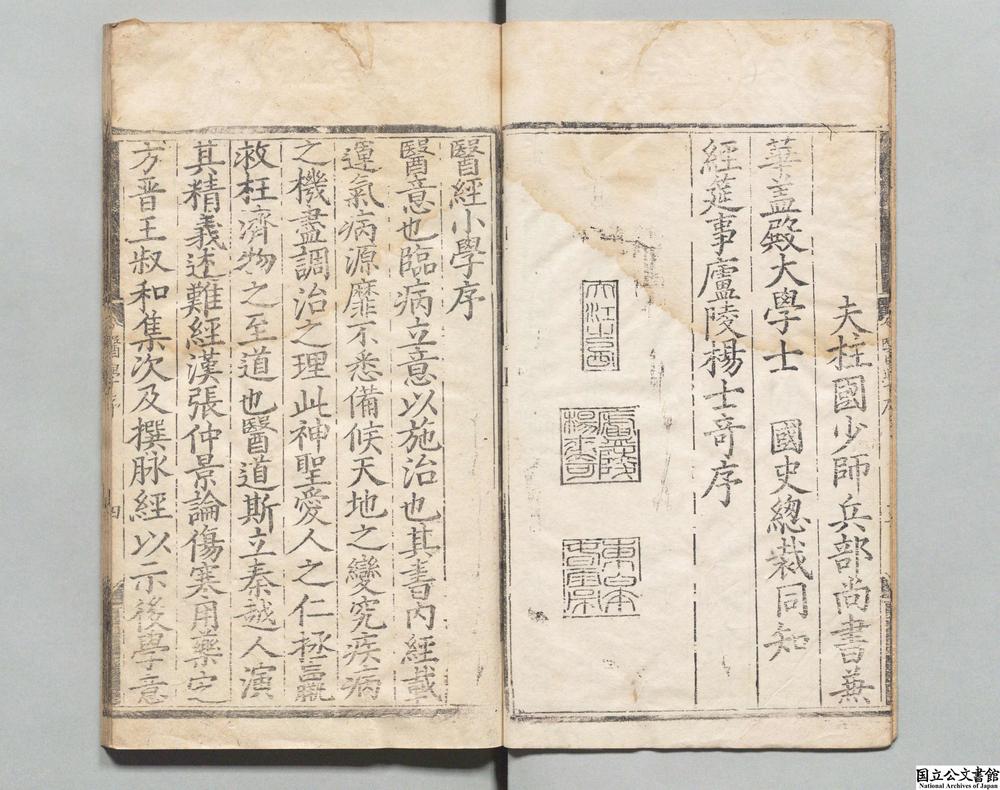 夫柱國少師兵部尚書兼
華盖殿大學士　國史總裁同知
經筵事廬陵楊士奇序
廬陵
楊士奇
醫經小學序
醫意也臨病立意以施治也其書内經載
運氣病源靡不悉備候天地之變究疾病
之機盡調治之理此神聖愛人之仁拯羸
救枉濟物之至道也醫道斯立秦越人演
其精義述難經漢張仲景論傷寒用藥定
方晋王叔和集次及撰脉經以示後學意
醫學序
四
国立公文書館
National Archives of Japan